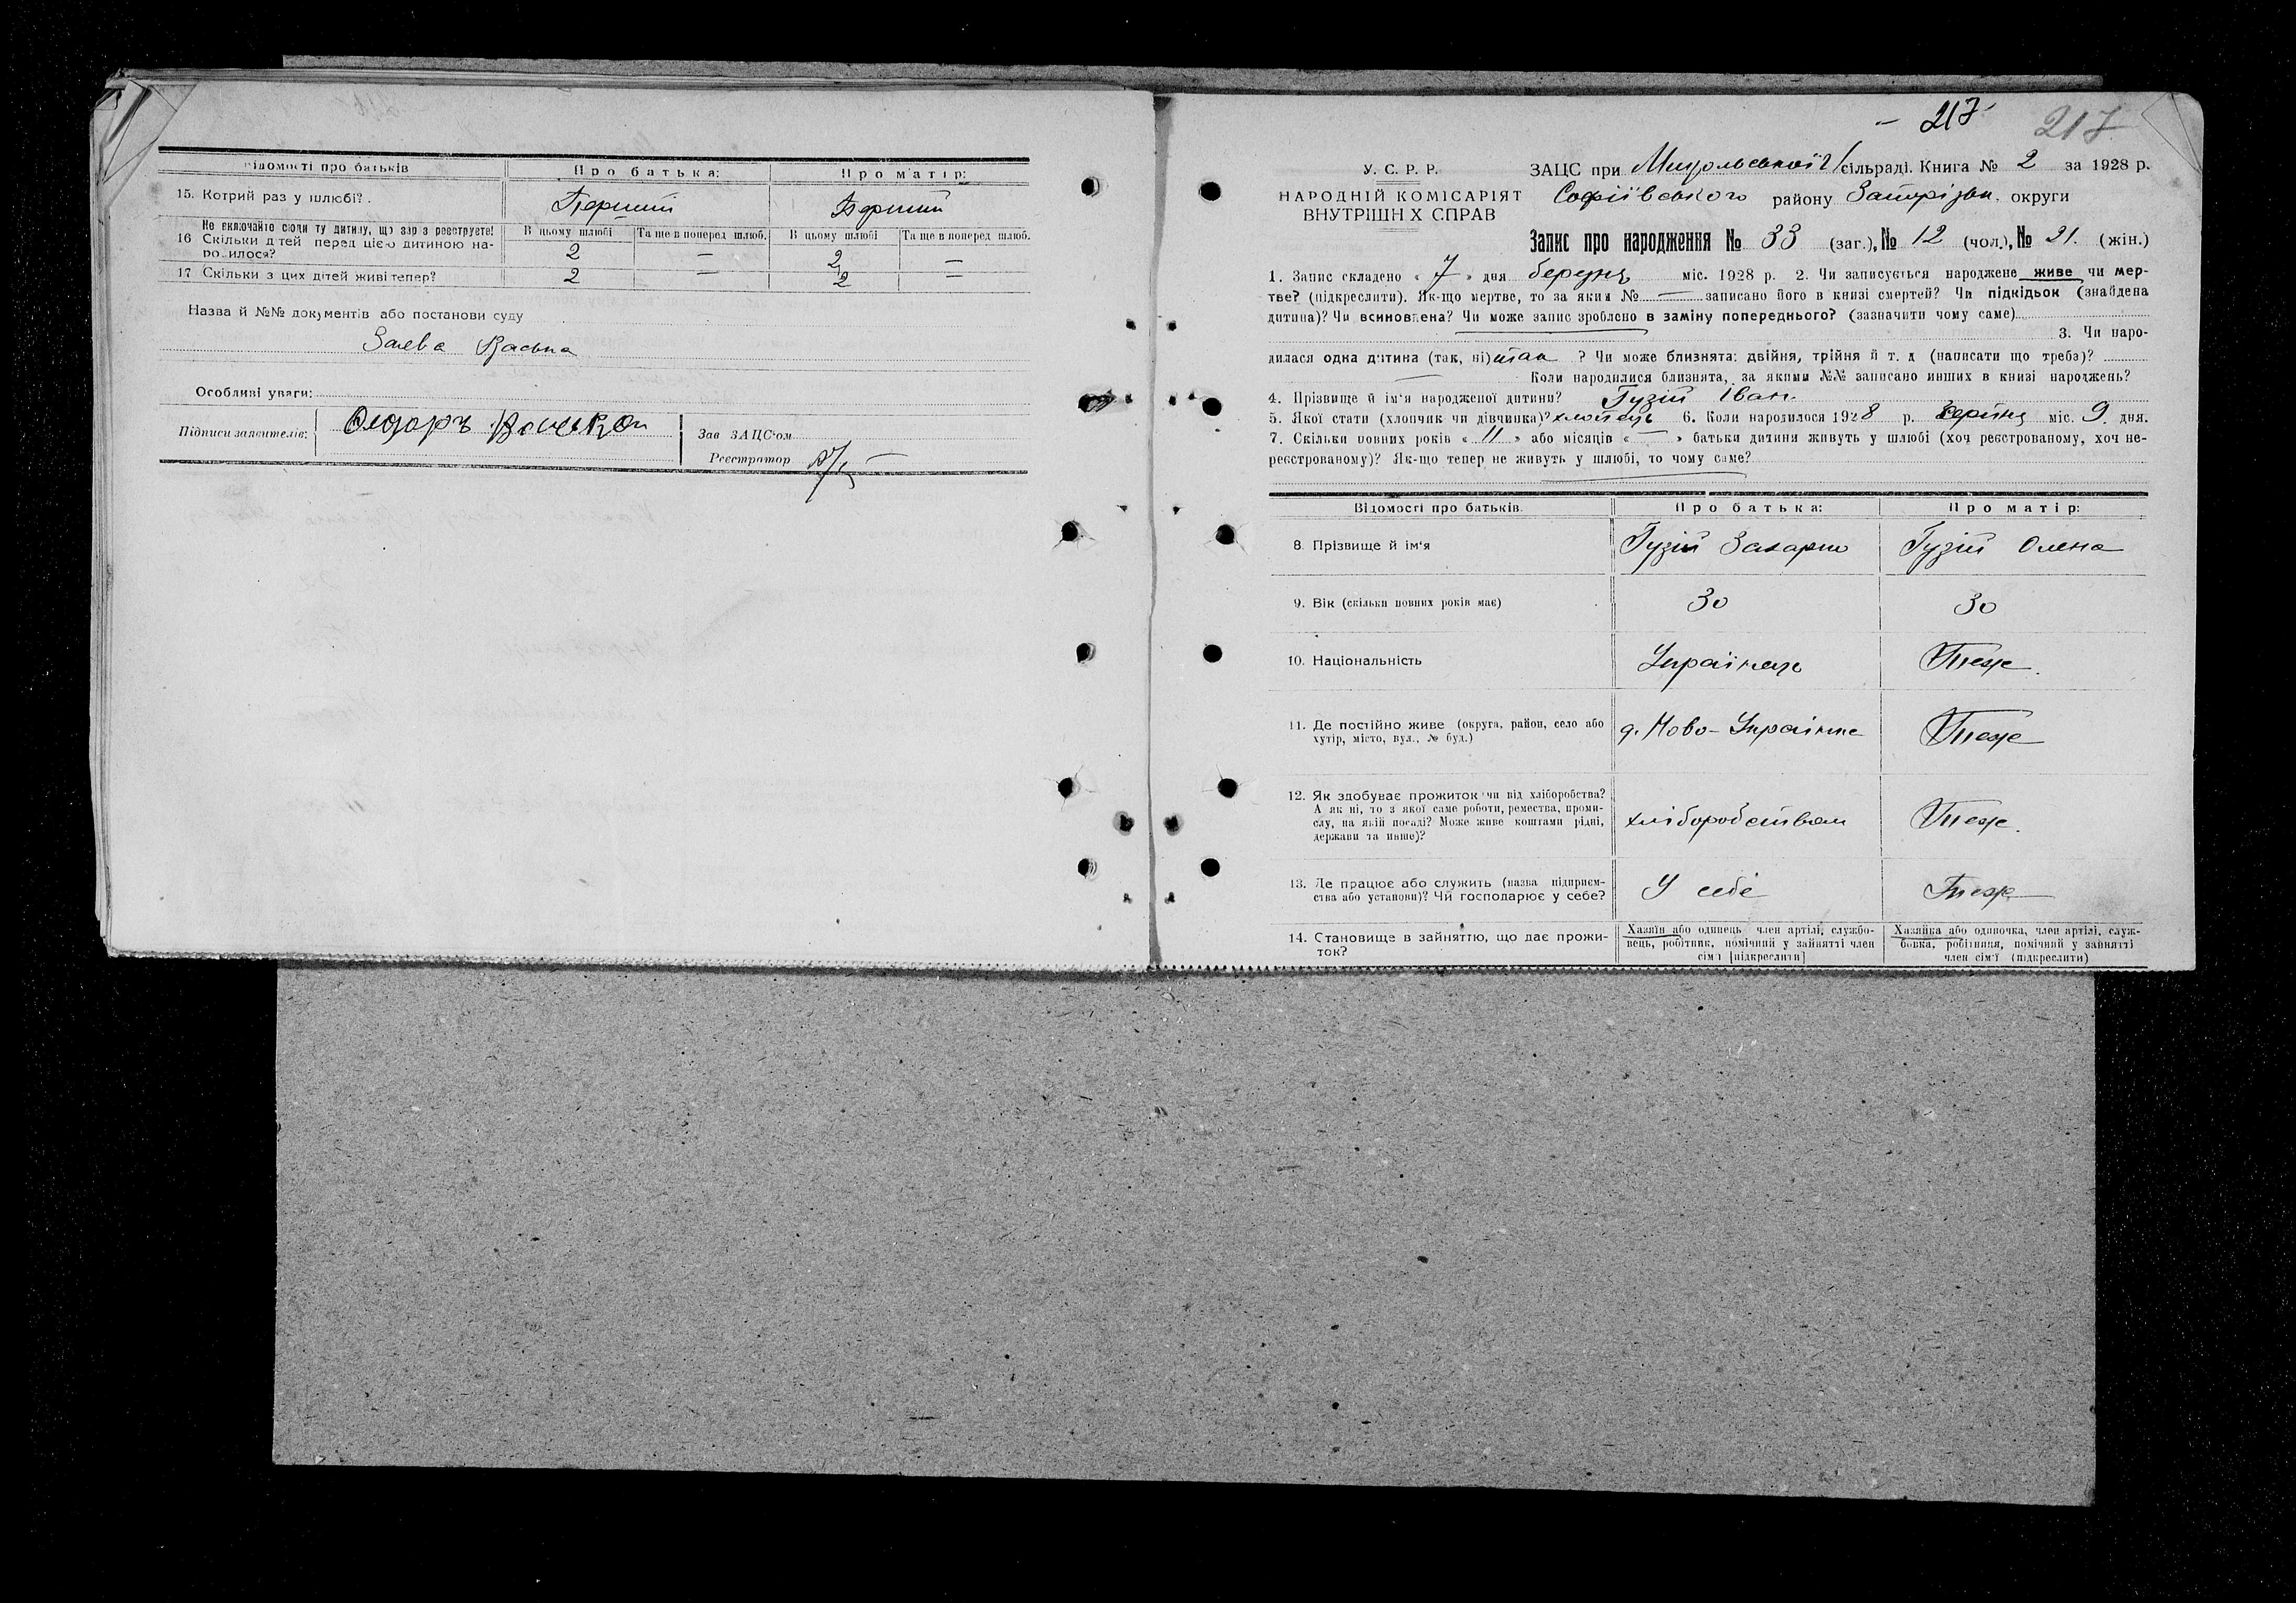 Відомості про батьків Про батька: Про матір:
15. Котрий раз у шлюбі? Перший Перший
Не включайте сюди ту дитину, що зараз реєструєте!
16 Скільки дітей перед цією дитиною народилося?
В цьому шлюбі Та ще в поперед. шлюб. В цьому шлюбі Та ще в поперед шлюб.
2 — 2 —
17 Скільки з цих дітей живі тепер? 2 — 2 —
Назва й №№ документів або постанови суду
Заява
Особливі уваги:
Підписи заявителів:
Зав ЗАЦС'ом
Реєстратор
- 217 217
У. С. Р. Р.
НАРОДНІЙ КОМІСАРІЯТ
ВНУТРІШНІХ СПРАВ
ЗАЦС при сільраді. Книга № 2 за 1928 р.
Софіївського району Запоріжж. округи
Запис про народження № 33 (заг.), № 12 (чол.), № 21. (жін.)
1. Запис складено « 7 » дня березня міс. 1928 р. 2. Чи записується народжене живе чи мер-
тве? (підкреслити). Як-що мертве, то за яким № — записано його в книзі смертей? Чи підкідьок (знайдена
дитина)? Чи всиновлена? Чи може запис зроблено в заміну попереднього? (зазначити чому саме)
3. Чи наро-
дилася одна дитина (так, ні) так ? Чи може близнята: двійня, трійня й т. д (написати що треба)?
— Коли народилися близнята, за якими №№ записано инших в книзі народжень?
4. Прізвище й ім'я народженої дитини? Гузій Іван.
5. Якої стати (хлопчик чи дівчинка)? хлопець 6. Коли народилося 1928 р. міс. 9. дня.
7. Скільки повних років « 11 » або місяців « — » батьки дитини живуть у шлюбі (хоч реєстрованому, хоч не-
реєстрованому)? Як-що тепер не живуть у шлюбі, то чому саме?
Відомості про батьків. Про батька: Про матір:
8. Прізвище й ім'я Гузій Захарій Гузій Олена
9. Вік (скільки повних років має) 30 30
10. Національність Українець Теж.
11. Де постійно живе (округа, район, село або
хутір, місто, вул., № буд.)
д. Ново-Українка Теж
12. Як здобуває прожиток чи від хліборобства?
А як ні, то з якої саме роботи, ремества, проми-
слу, на якій посаді? Може живе коштами рідні,
держави та инше)?
хліборобством Теж.
13. Де працює або служить (назва підприєм-
ства або установи)? Чи господарює у себе?
У себе Теж
14. Становище в зайняттю, що дає прожи-
ток?
Хазяїн або одинець член артілі, службо-
вець, робітник, помічний у зайнятті член
сім'ї [підкреслити]
Хазяйка або одиночка, член артілі, служ-
бовка, робітниця, помічний у зайнятті
член сім'ї (підкреслити)